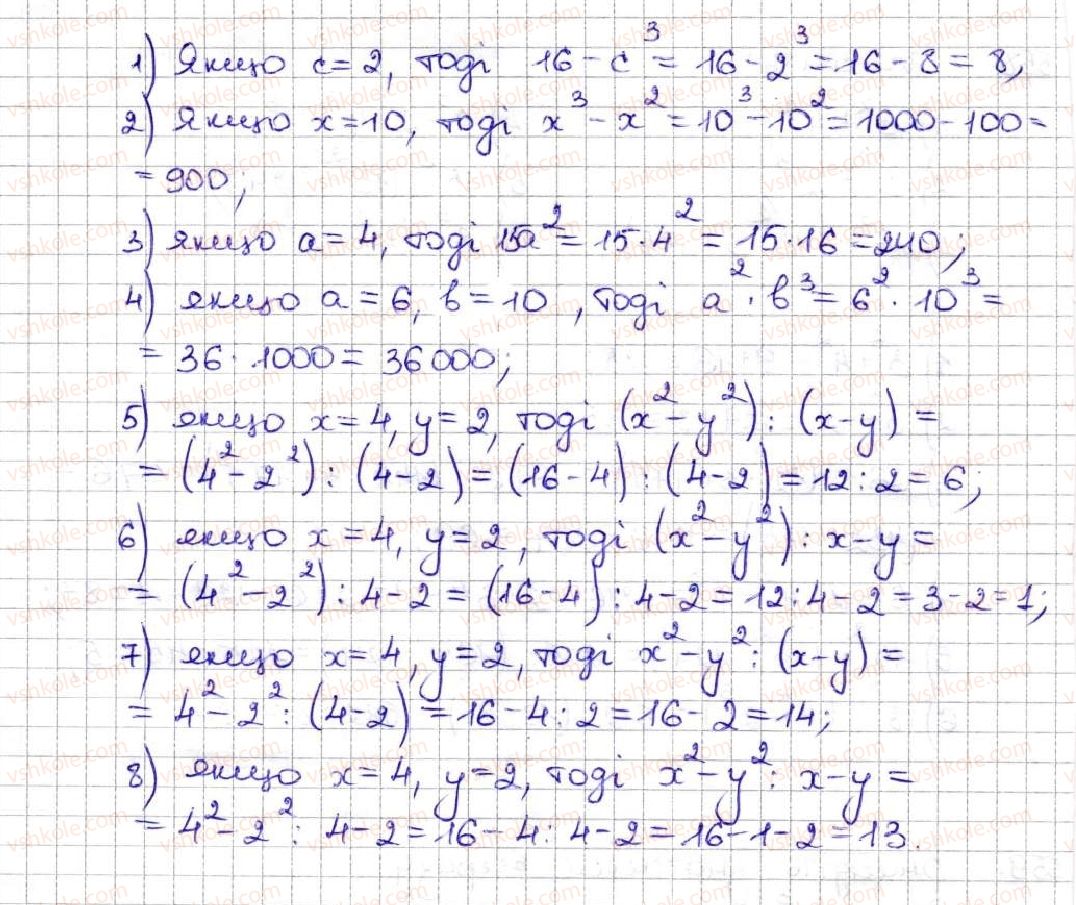 1) Якщо c = 2, тоді 16 - c³ = 16 - 2³ = 16 - 8 = 8,
2) Якщо x = 10, тоді x³ - x² = 10³ - 10² = 1000 - 100 =
= 900;
3) якщо a = 4, тоді 15a² = 15 · 4² = 15 · 16 = 240;
4) якщо a = 6, b = 10, тоді a² · b³ = 6² · 10³ =
= 36 · 1000 = 36000;
5) якщо x = 4, y = 2, тоді (x² - y²) : (x - y) =
= (4² - 2²) : (4 - 2) = (16 - 4) : (4 - 2) = 12 : 2 = 6;
6) якщо x = 4, y = 2, тоді (x² - y²) : x - y =
= (4² - 2²) : 4 - 2 = (16 - 4) : 4 - 2 = 12 : 4 - 2 = 3 - 2 = 1;
7) якщо x = 4, y = 2, тоді x² - y² : (x - y) =
= 4² - 2² : (4 - 2) = 16 - 4 : 2 = 16 - 2 = 14;
8) якщо x = 4, y = 2, тоді x² - y² : x - y =
= 4² - 2² : 4 - 2 = 16 - 4 : 4 - 2 = 16 - 1 - 2 = 13.